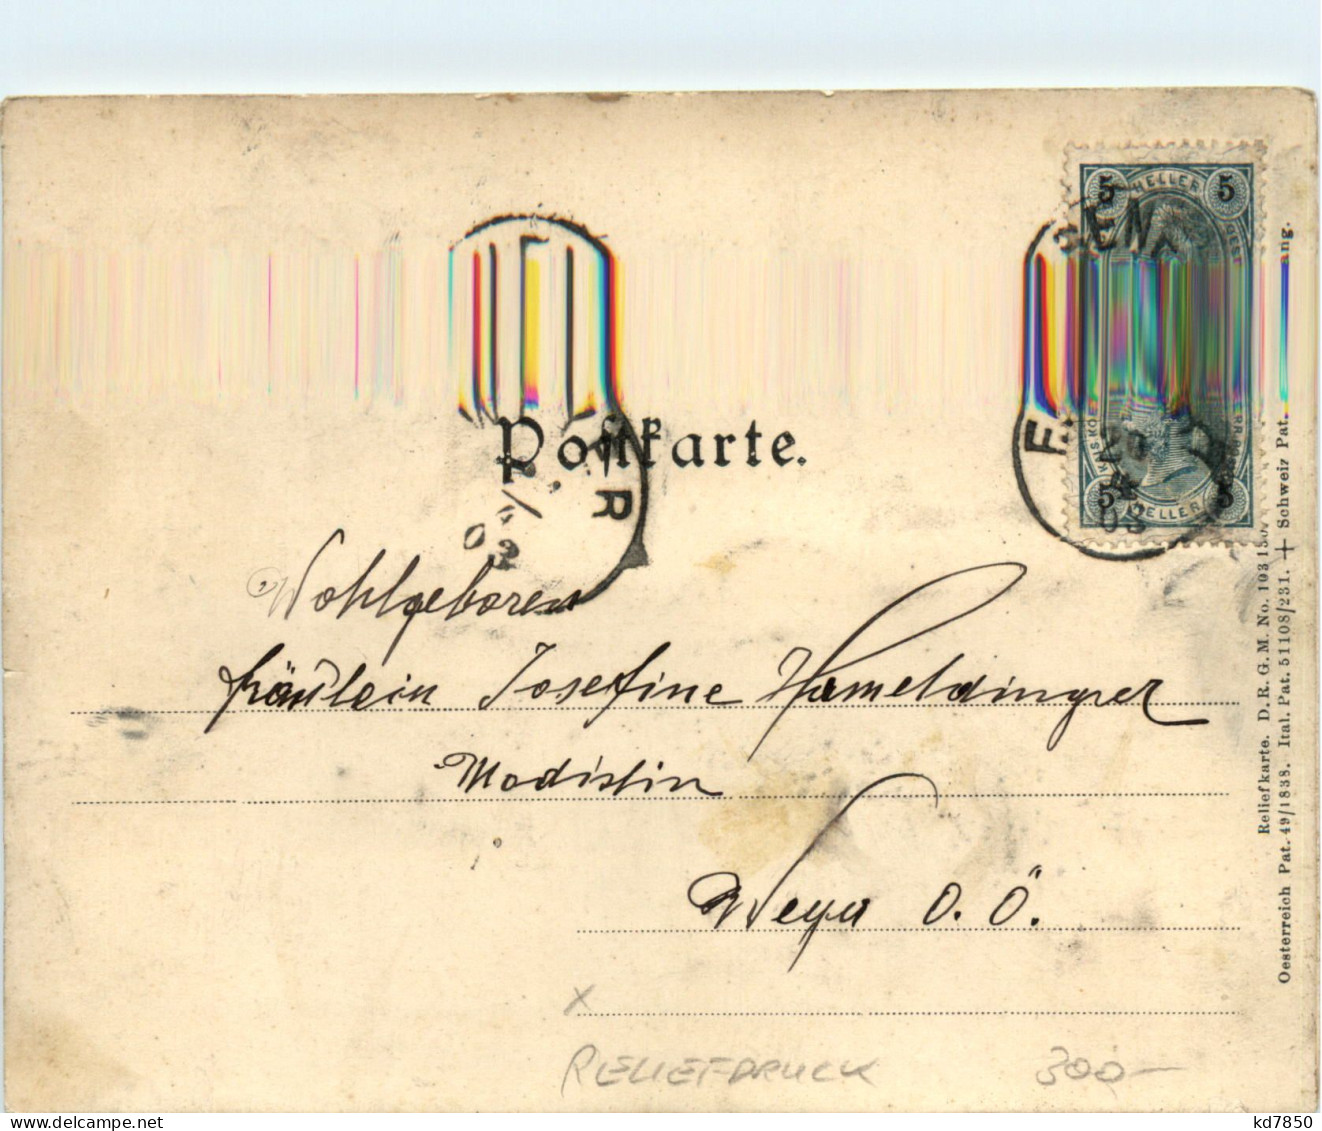 5 HELLER 5
Postkarte.
R
F
03
5 HELLER 5
Wohlgeboren
Fräulein Josefine Hameldinger
Modistin
Weyer O. Ö.
x
RELIEFDRUCK 300-
Reliefkarte. D. R. G. M. No. 103 130.
Oesterreich Pat. 49/1838. Ital. Pat. 51108/231. + Schweiz Pat. ang.
kd7850